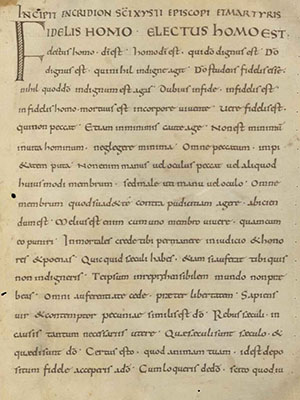 INCIPIT INCRIDION SC̄I XYSTI EPISCOPI ET MARTYRIS
FIDELIS HOMO · ELECTUS HOMO EST ·
electus homo · dī est homo dī est · qui dō dignus est Dō
dignus est · qui nihil indigne agit Dō studens fidelis esse
nihil quod dō indignum est agas Dubius in fide · infidelis est
infidelis homo · mortuus est in corpore vivente Vere fidelis est ·
qui non peccat Etiam in minimis caute age Non est minimum
in vita hominum · neglegere minima Omne peccatum · impi
etatem puta Non enim manus vel oculus peccat vel aliquod
huiusmodi membrum · sed male uti manu vel oculo · Omne
membrum quod suadet te contra pudicitiam agere · abicien
dum est Melius est enim cum uno membro vivere · quam cum
eo puniri Inmortales crede tibi permanere in iudicio & hono
res & poenas Quicquid seculi habes · & si auferat tibi quis
non indigneris Teipsum inreprehensibilem mundo non prae
beas Omni auferenti te cede · praeter libertatem Sapiens
vir & contemptor pecuniae similis est dō · Rebus seculi · in
causis tantum necessariis utere Quae seculi sunt seculo · &
quae di sunt dō Certus esto · quod animam tuam · id est depo
situm fidele acceperis a dō Cum loqueris de dō · scito quod iu